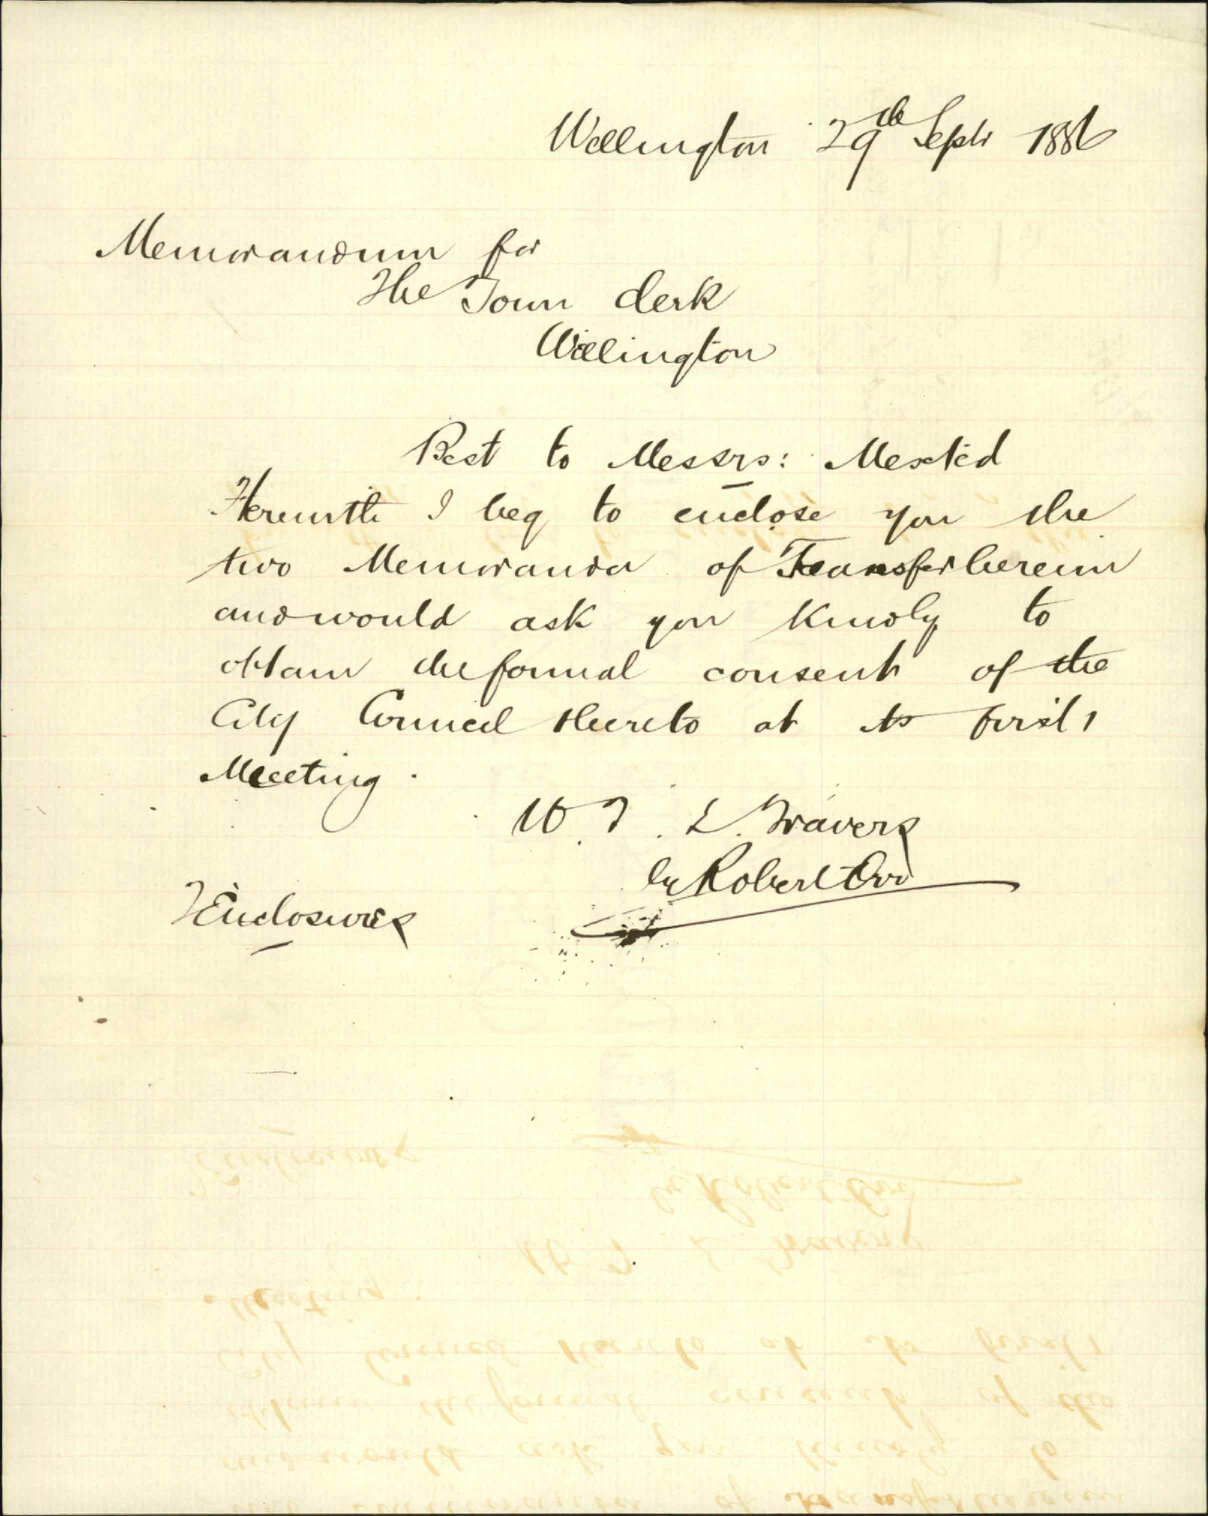 Wellington 29th Sept 1886
Memorandum for
The Town Clerk
Wellington
Best to Messrs: Mexted
Herewith I beg to enclose you the
two Memoranda of Transfer herein
and would ask you kindly to
obtain the formal consent of the
City Council thereto at its first
Meeting.
W. T. L. Travers
by Robert Orr
Enclosures